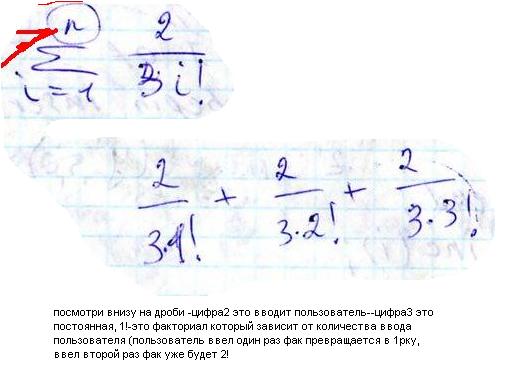 n
Σ 2 / 3 i!
i = 1
2 / 3·1! + 2 / 3·2! + 2 / 3·3!
посмотри внизу на дроби -цифра2 это вводит пользователь--цифра3 это
постоянная, 1!-это факториал который зависит от количества ввода
пользователя (пользователь ввел один раз фак превращается в 1рку,
ввел второй раз фак уже будет 2!